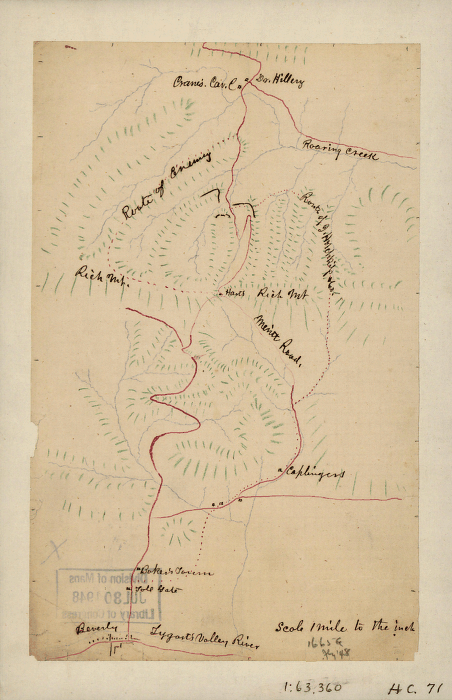 Crane's. Car. Co.
Dr. Hillery
Roaring Creek
Route of Enemy
Route of
Rich Mt.
Harts
Rich Mt
Merit Road.
Caplingers
Baker's Tavern
Toll Gate
Division of Maps
JUL 30 1948
Library of Congress
Beverly
Tygarts Valley River
Scale 1 mile to the inch
1:63,360
H.C. 71